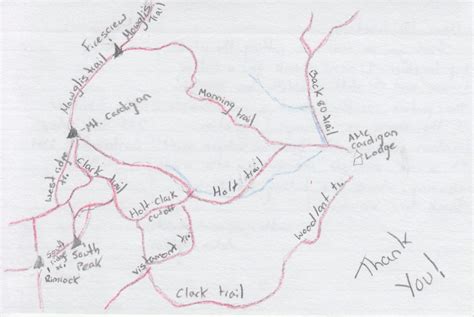 Mowglis
Trail
Firescrew
Mowglis trail
Manning trail
Back 80 trail
Mt. Cardigan
AMC
Cardigan
Lodge
West ridge
Clark trail
Holt trail
Holt-Clark
cutoff
Woodland tr.
South
Peak
Rimrock
Vistamont tr.
Clark trail
Thank
You!